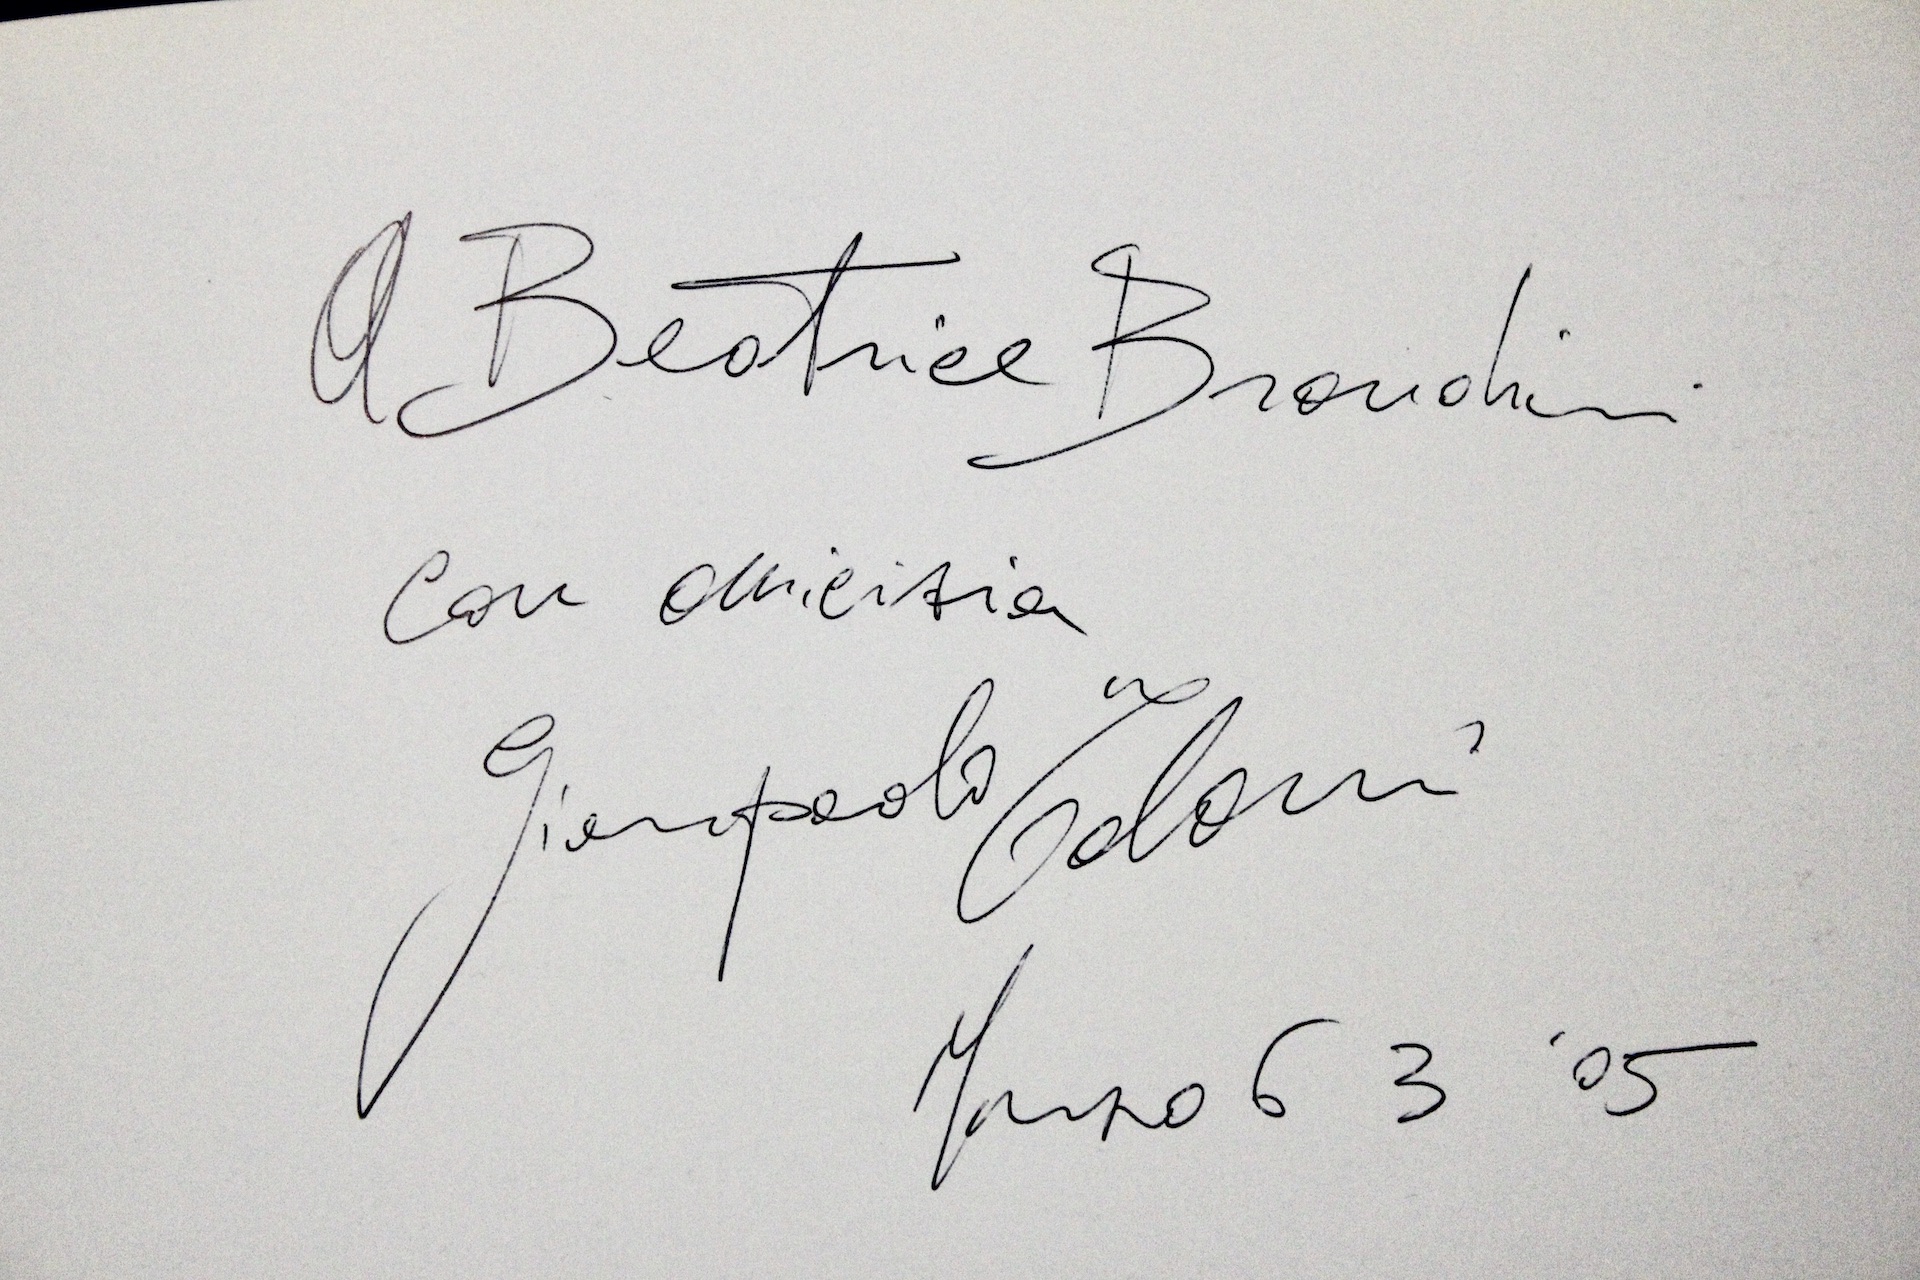 A Beatrice Brandini
con amicizia
Gianpaolo Talani
6 3 '05